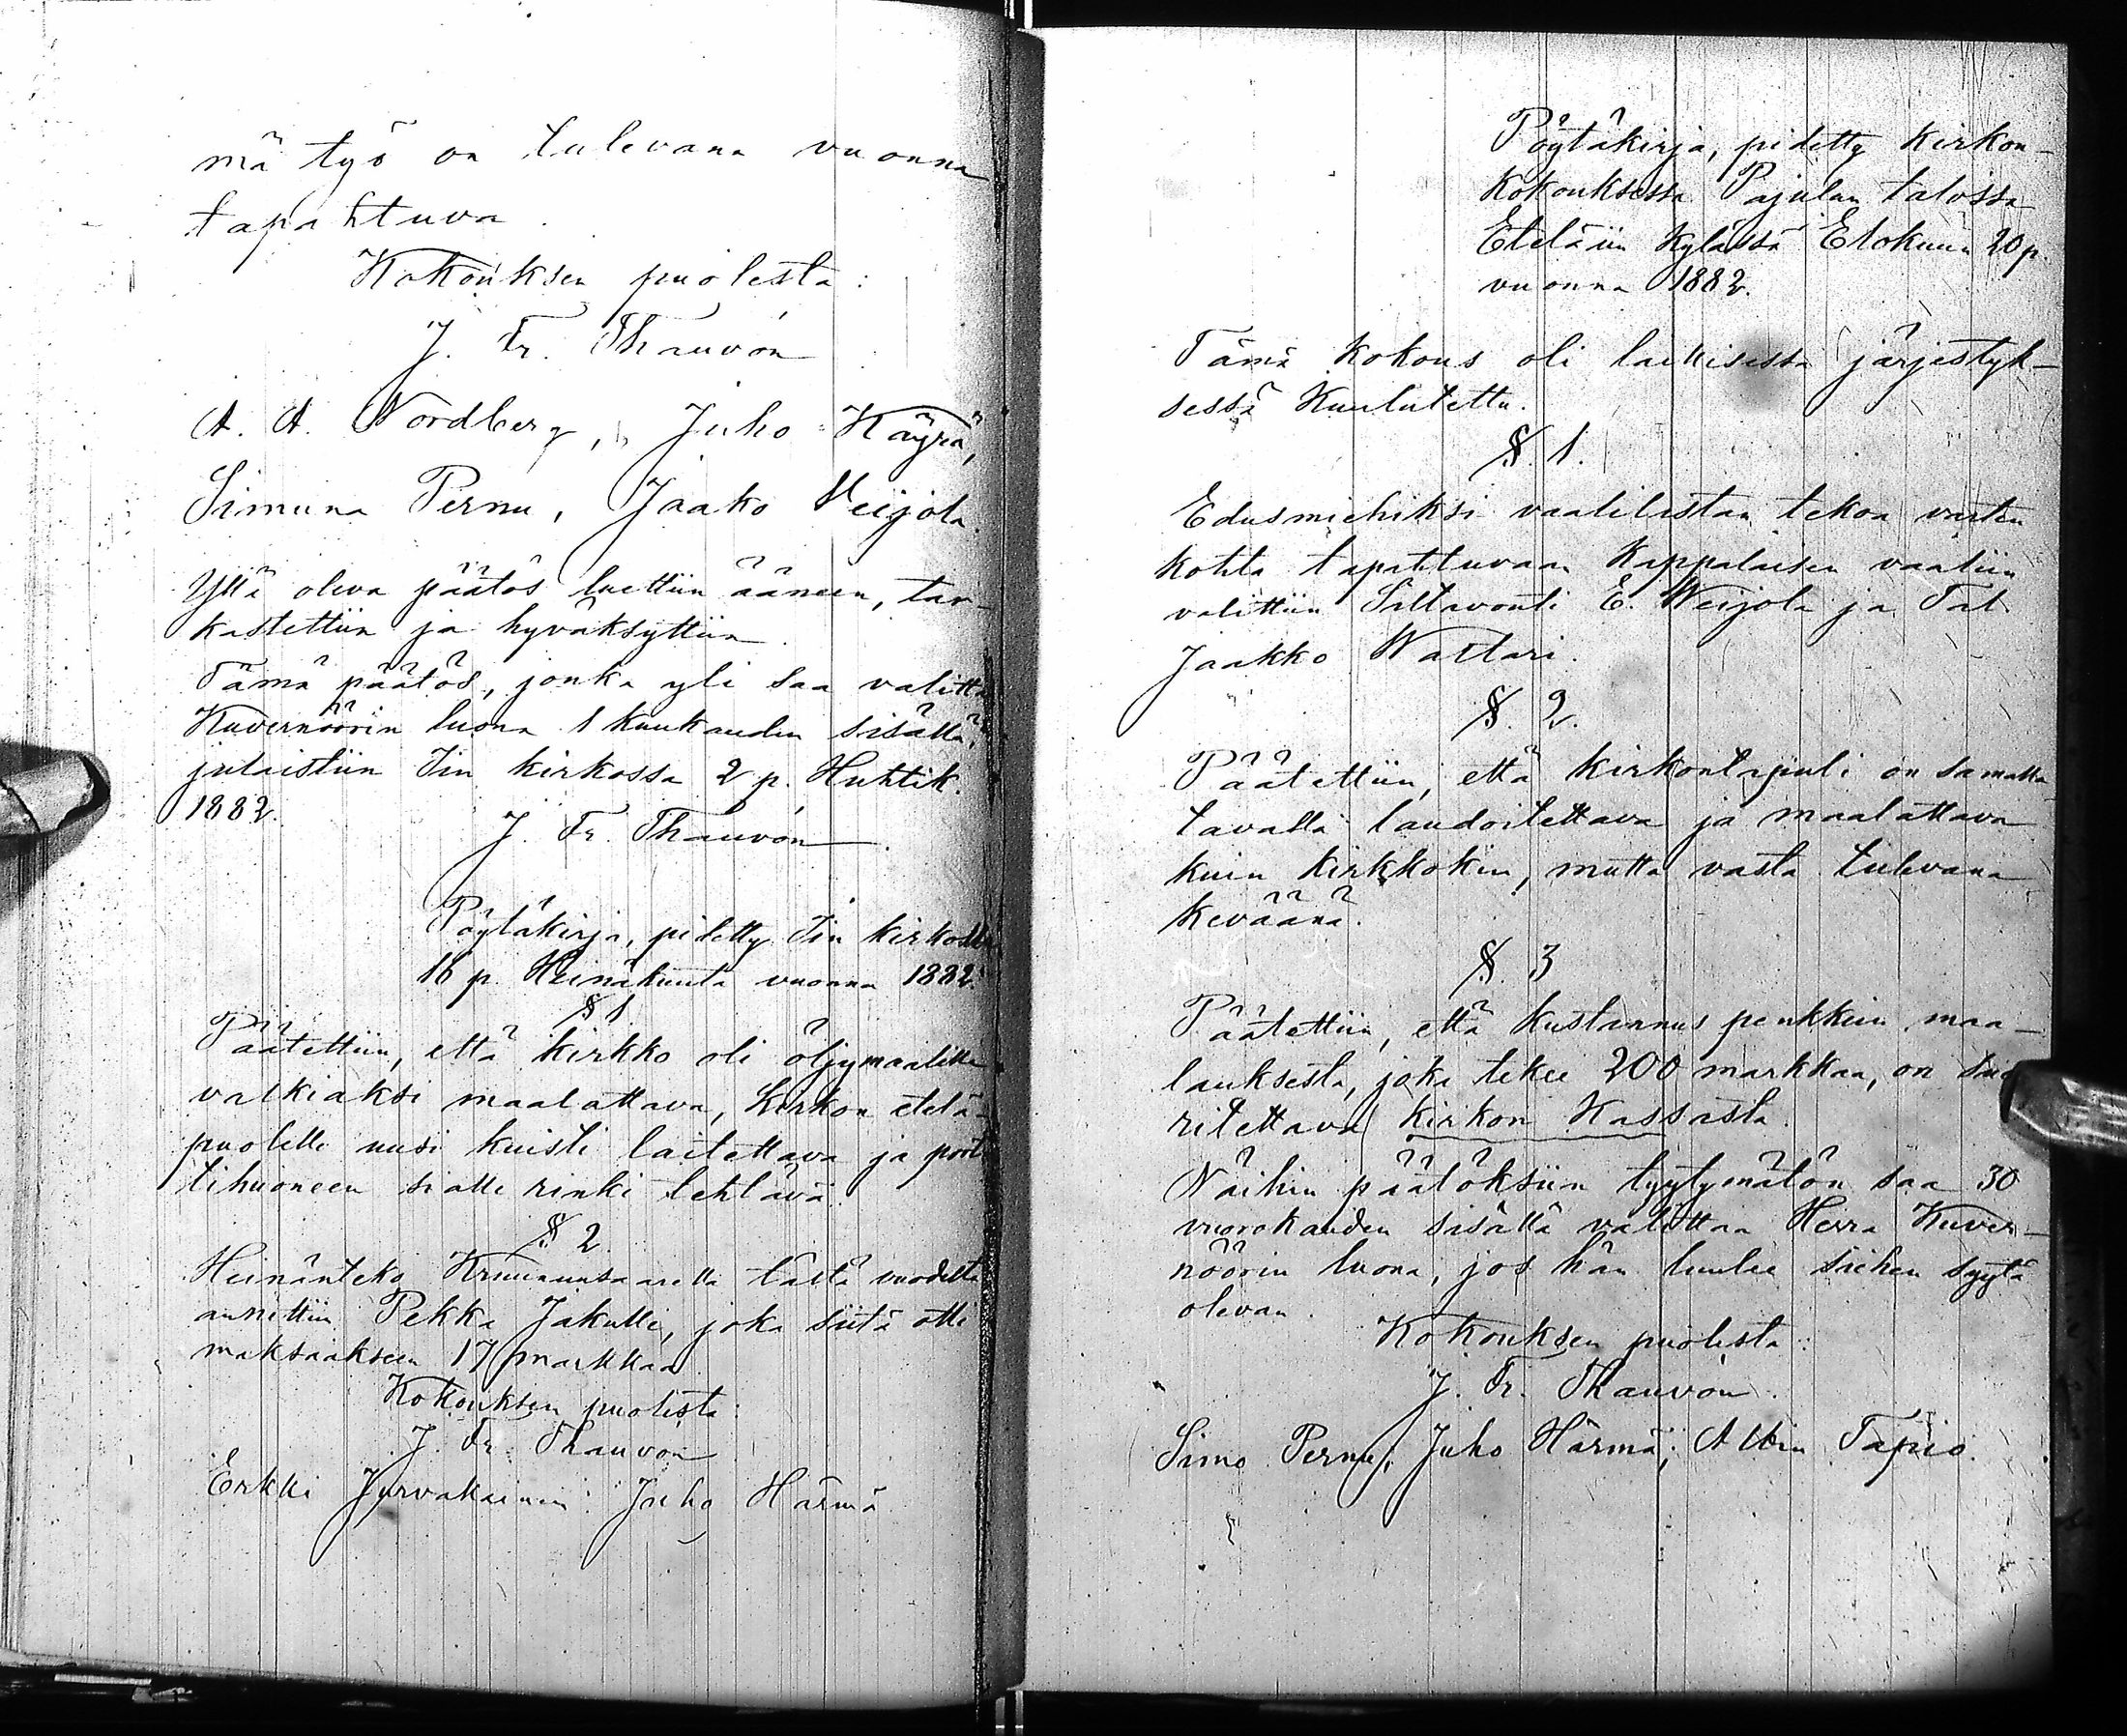 mä työ on tulevana vuonna
tapahtuva.
Kokouksen puolesta:
J. Fr. Thauvón
A. A. Nordberg, Juho Käyrä,
Simuna Pernu, Jaako Veijola.
Yllä oleva päätös luettiin ääneen, tar-
kastettiin ja hyväksyttiin.
Tämä päätös, jonka yli saa valittaa
Kuvernöörin luona 1 kuukauden sisällä,
julaistiin Iin kirkossa 2 p. Huhtik.
1882.
J. Fr. Thauvón.
Pöytäkirja, pidetty Iin kirkossa
16 p. Heinäkuuta vuonna 1882.
§ 1
Päätettiin, että kirkko oli öljymaalilla
valkiaksi maalattava, Kirkon etelä-
puolelle uusi kuisti laitettava ja
tihuoneen sialle rinki tehtävä.
§ 2.
Heinänteko Kruununsaarella tästä vuodelta
annettiin Pekka Jakulle, joka siitä otti
maksaakseen 17 markkaa.
Kokouksen puolesta:
J. Fr. Thauvón
Erkki Jurvakainen. Juho Härmä
Pöytäkirja, pidetty kirkon-
kokouksessa Pajulan talossa
Eteläiin kylässä Elokuun 20 p.
vuonna 1882.
Tämä kokous oli laillisessa järjestyk-
sessä kuulutettu.
§. 1.
Edusmiehiksi vaalilistan tekoa varten
kohta tapahtuvaan Kappalaisen vaaliin
valittiin Siltavouti E. Weijola ja Tal.
Jaakko Wattari.
§. 2.
Päätettiin, että kirkontapuli on samalla
tavalla laudoitettava ja maalattava
kuin kirkkokin, mutta vasta tulevana
keväänä.
§. 3
Päätettiin, että kustannus penkkiin maa-
lauksesta, joka tekee 200 markkaa, on suo
ritettava kirkon Kassasta.
Näihin päätöksiin tyytymätön saa 30
vuorokauden sisällä valittaa Herra Kuver-
nöörin luona, jos hän luulee siehen syytä
olevan.
Kokouksen puolesta:
J. Fr. Thauvón.
Simo Pernu, Juho Härmä; Albin Tapio.